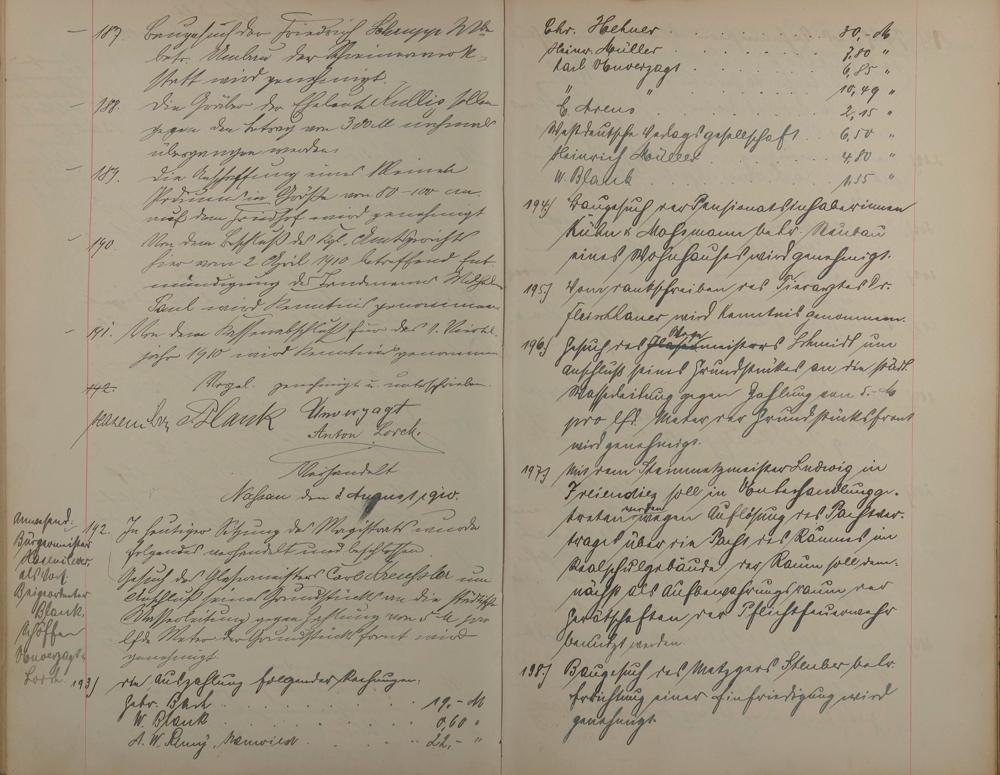 – 187. Baugesuch des Friedrich Schrupp Wwe
betr. Umbau der Schreinerwerk-
statt wird genehmigt.
– 188. Die Gräber der Eheleute Rullis sollen
gegen den Betrag von 300 M nochmals
übergangen werden.
– 189. Die Anschaffung eines kleinen
in Größe von 80–100 cm.
auf dem Friedhof wird genehmigt
– 190. Von dem Beschluß des Kgl. Amtsgerichts
hier vom 2 April 1910 betreffend Ent
mündigung des Wilhelm
Paul wird Kenntnis genommen
– 191. Von dem Kassenabschluß für das 1. Viertel
jahr 1910 wird Kenntnis genommen
192. Vorgel. genehmigt u. unterschrieben.
Hasenclever Blank Unverzagt
Anton Lorch.
Verhandelt
Nassau den 2 August 1910.
Anwesend:
Bürgermeister
Hasenclever
als Vors.
Beigeordneter
Blank.
Schöffen
Unverzagt
Lorch.
192. In heutiger Sitzung des Magistrats wurde
folgendes verhandelt und beschlossen.
Gesuch des Glasermeisters Carl um
Anschluß seines Grundstücks an die städtische
Wasserleitung gegen Zahlung von 5 M pro
lfde Meter der Grundstücksfront wird
genehmigt.
193) die Auszahlung folgender Rechnungen:
Gebr. . . . 19,– M
W. Blank . . . 0,60 "
A. W. Remy, Neuwied . . . 22,– "
Chr. Hehner . . . 30,– M
Heinr. Müller . . . 7,80 "
Carl Unverzagt . . . 6,85 "
" " . . . 10,49 "
E. Arens . . . 2,15 "
Westdeutsche Verlagsgesellschaft . . . 6,50 "
Heinrich Müller . . . 4,80 "
W. Blank . . . 1,55 "
194) Baugesuch der Pensionatsinhaberinnen
Kühn & Mohrmann betr. Neubau
eines Wohnhauses wird genehmigt.
195) Vom Dankschreiben des Tierarztes Dr.
Fleischhauer wird Kenntnis genommen.
196) Gesuch des Glasermeisters Schmidt um
Anschluß seines Grundstückes an die städt.
Wasserleitung gegen Zahlung von 5.– M
pro lfd. Meter der Grundstücksfront
wird genehmigt.
197) Mit dem Steinmetzmeister Ludwig in
Freiendiez soll in Unterhandlung ge-
treten werden wegen Auflösung des Pachtver-
trages über die Pacht des Raumes im
Realschulgebäude. Der Raum soll dem-
nächst als Aufbewahrungsraum der
Gerätschaften der Pflichtfeuerwehr
benutzt werden.
198) Baugesuch des Metzgers Stuber betr.
Errichtung einer Einfriedigung wird
genehmigt.